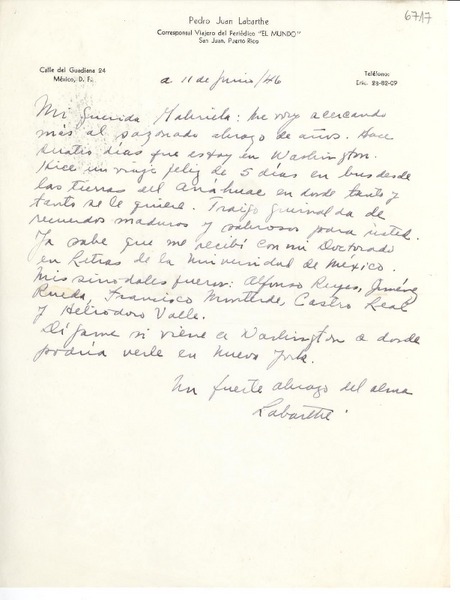 6717
Pedro Juan Labarthe
Corresponsal Viajero del Periódico "EL MUNDO"
San Juan, Puerto Rico
Calle del Guadiana 24
México, D. F.
Teléfono:
Eric. 28-82-09
a 11 de junio/46
Mi querida Gabriela: Me voy acercando
más al sazonado abrazo de años. Hace
cuatro días que estoy en Washington.
Hice un viaje feliz de 5 días en bus desde
las tierras del Anáhuac en donde tanto y
tanto se le quiere. Traigo guirnalda de
recuerdos maduros y sabrosos para usted.
Ya sabe que me recibí con mi Doctorado
en Letras de la Universidad de México.
Mis sinodales fueron: Alfonso Reyes, Jiménez
Rueda, Francisco Monterde, Castro Leal
y Heliodoro Valle.
Dígame si viene a Washington o donde
podría verle en Nueva York.
Un fuerte abrazo del alma
Labarthe